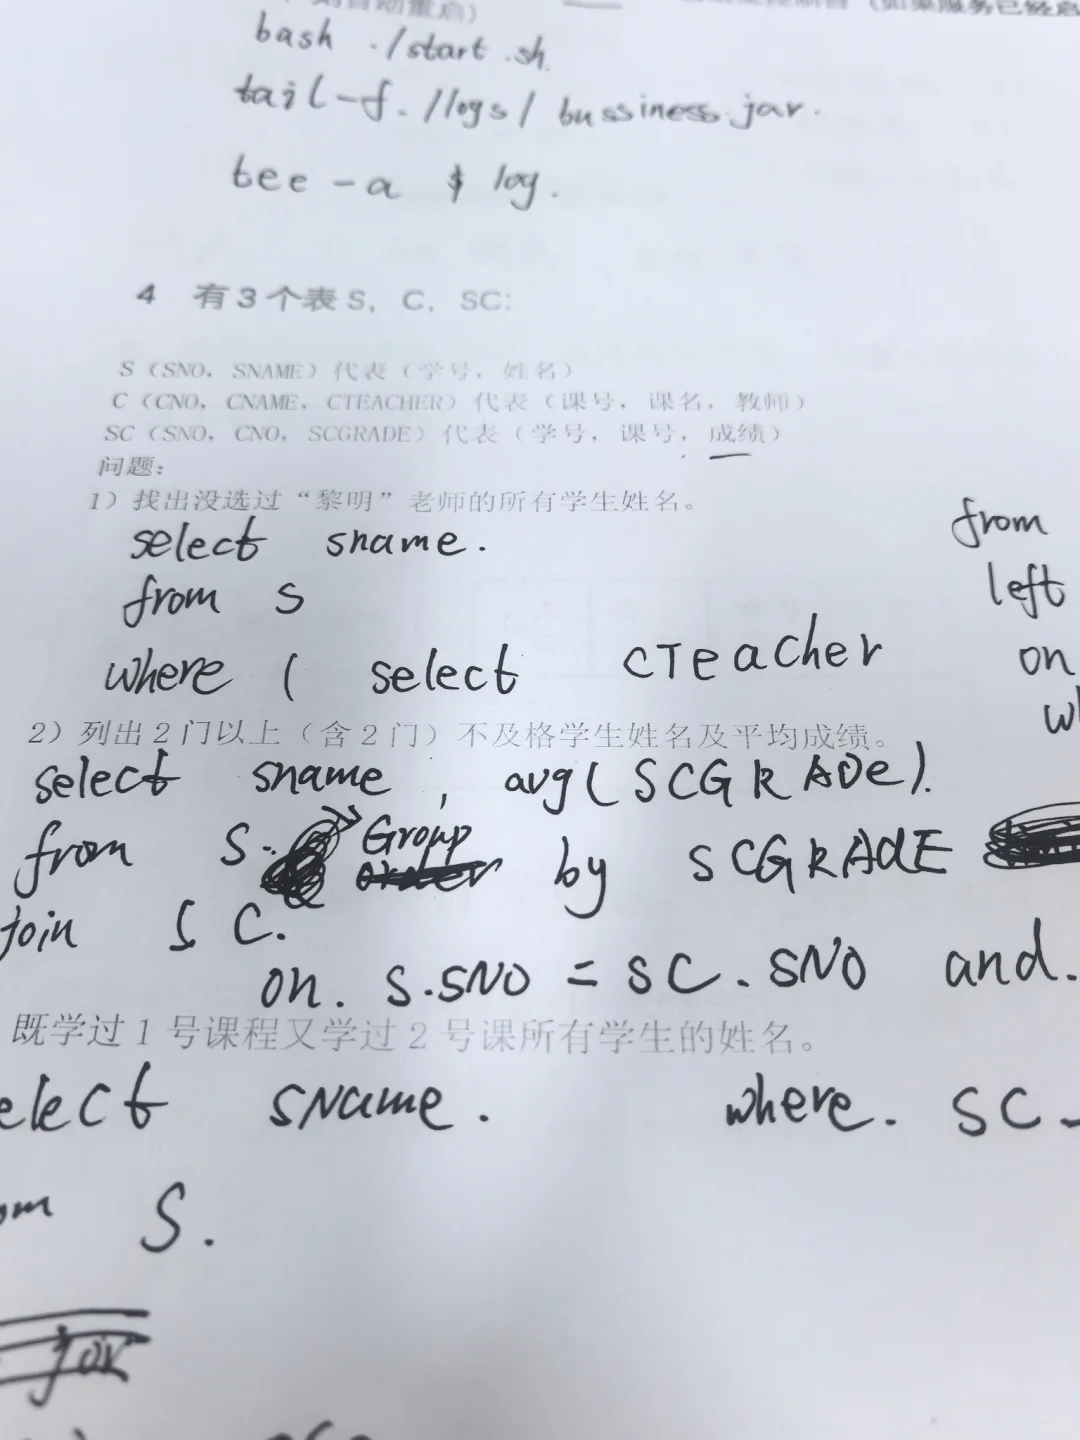 则自动重启）
（如果服务已经启
bash ./start.sh.
tail -f ./logs/ bussiness.jar.
tee -a $ log.
4 有3个表S，C，SC：
S（SNO，SNAME）代表（学号，姓名）
C（CNO，CNAME，CTEACHER）代表（课号，课名，教师）
SC（SNO，CNO，SCGRADE）代表（学号，课号，成绩）
问题：
1）找出没选过“黎明”老师的所有学生姓名。
select sname.
from s
where ( select CTeacher
from
left
on
2）列出2门以上（含2门）不及格学生姓名及平均成绩。
select sname , avg(SCGRADe).
from S. Group by SCGRAdE
join SC.
on. S.SNO = SC.SNO and.
既学过1号课程又学过2号课所有学生的姓名。
elect SNAme. where. SC.
om S.